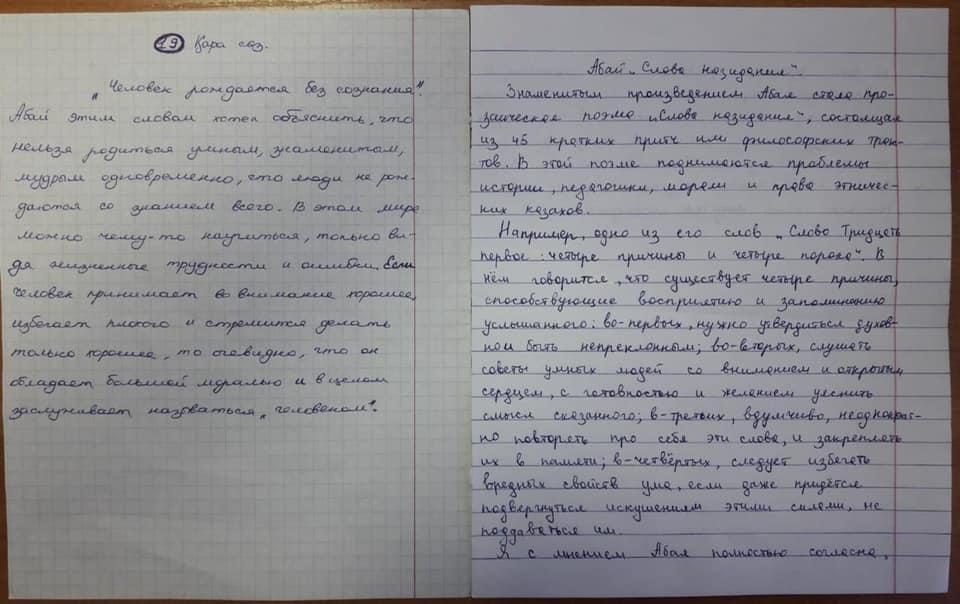 19 Қара сөз.
„Человек рождается без сознания".
Абай этим словам хотел объяснить, что
нельзя родиться умным, знаменитым,
мудрым одновременно, что люди не рож-
даются со знанием всего. В этом мире
можно чему-то научиться, только ви-
дя жизненные трудности и ошибки. Если
человек принимает во внимание хорошее,
избегает плохого и стремится делать
только хорошее, то очевидно, что он
обладает большой моралью и в целом
заслуживает называться „человеком".
Абай „Слова назидания".
Знаменитым произведением Абая стала про-
заическая поэма „Слова назидания", состоящая
из 45 кратких притч или философских трак-
тов. В этой поэме поднимаются проблемы
истории, педагогики, морали и права этничес-
ких казахов.
Например, одно из его слов „Слово Тридцать
первое: четыре причины и четыре порока". В
нём говорится, что существует четыре причины,
способствующие восприятию и запоминанию
услышанного: во-первых, нужно утвердиться духов-
но и быть непреклонным; во-вторых, слушать
советы умных людей со вниманием и открытым
сердцем, с готовностью и желанием уяснить
смысл сказанного; в-третьих, вдумчиво, неоднократ-
но повторять про себя эти слова, и закреплять
их в памяти; в-четвёртых, следует избегать
вредных свойств ума, если даже придётся
подвергнуться искушениям этими силами, не
поддаваться им.
Я с мнением Абая полностью согласна,